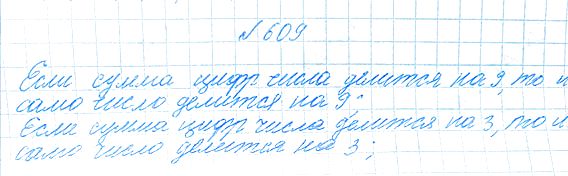 №609
Если сумма цифр числа делится на 9, то и
само число делится на 9;
Если сумма цифр числа делится на 3, то и
само число делится на 3;